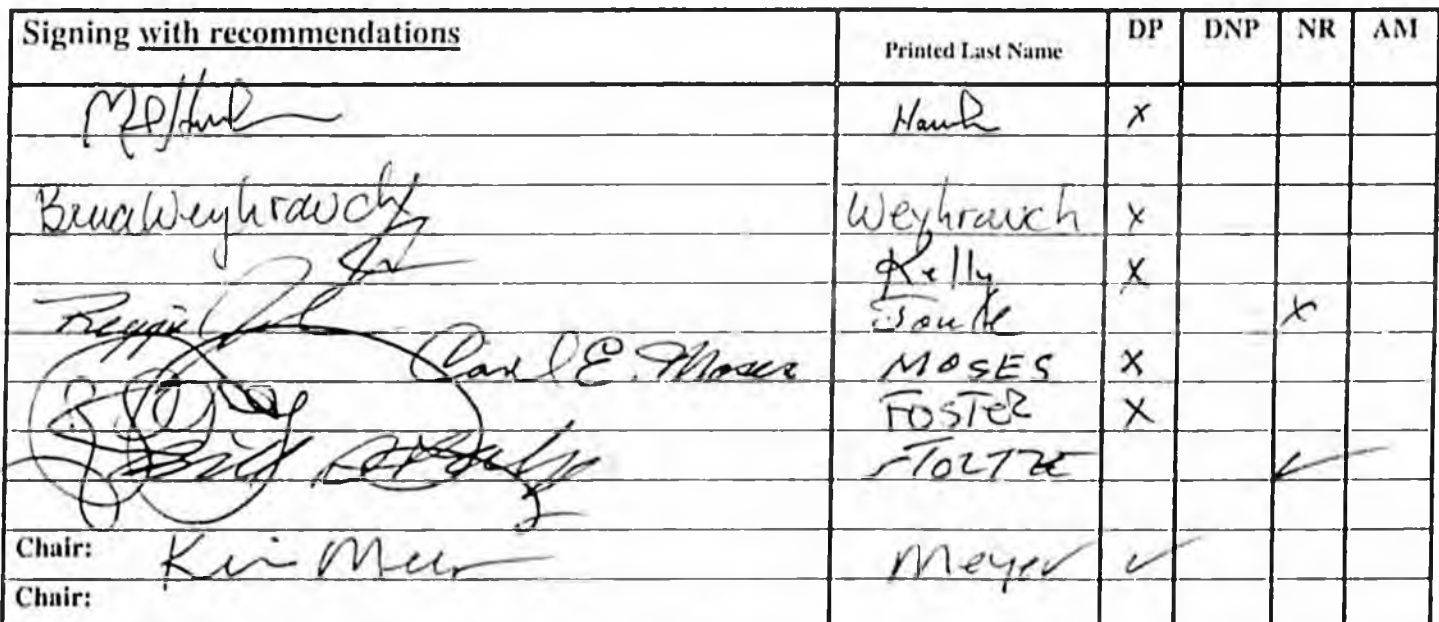 Signing with recommendations Printed Last Name DP DNP NR AM
Hawk X
Bruce Weyhrauch Weyhrauch X
Kelly X
Reggie Joule Joule X
Carl E. Moses MOSES X
FOSTER X
Bill Stoltze STOLTZE ✓
Chair: Kevin Meyer Meyer ✓
Chair: